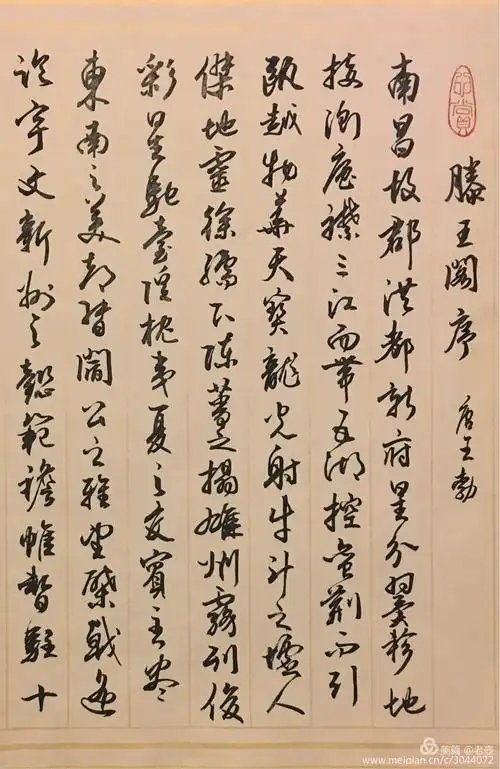 滕王閣序 唐王勃
南昌故郡洪都新府星分翼軫地
接衡廬襟三江而帶五湖控蠻荊而引
甌越物華天寶龍光射牛斗之墟人
傑地靈徐孺下陳蕃之榻雄州霧列俊
彩星馳臺隍枕夷夏之交賓主盡
東南之美都督閻公之雅望棨戟遙
臨宇文新州之懿範襜帷暫駐十
美篇 @老壶
www.meipian.cn/c/3044072